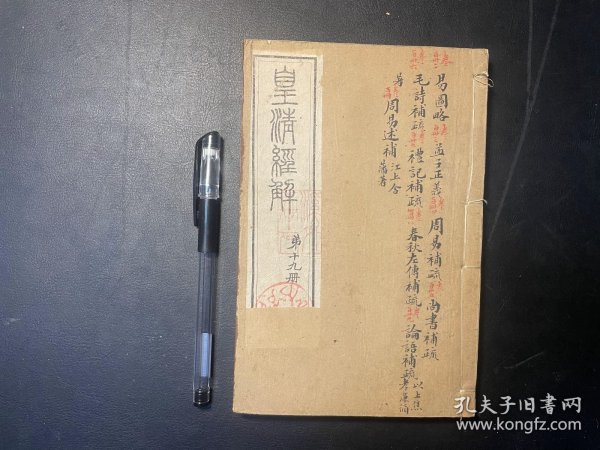 易圖略 孟子正義 周易補疏 尚書補疏
毛詩補疏 禮記補疏 春秋左傳補疏 論語補疏 以上焦
周易述補 江上舍
藩著
皇清經解
第十九册
孔夫子旧书网
www.kongfz.com